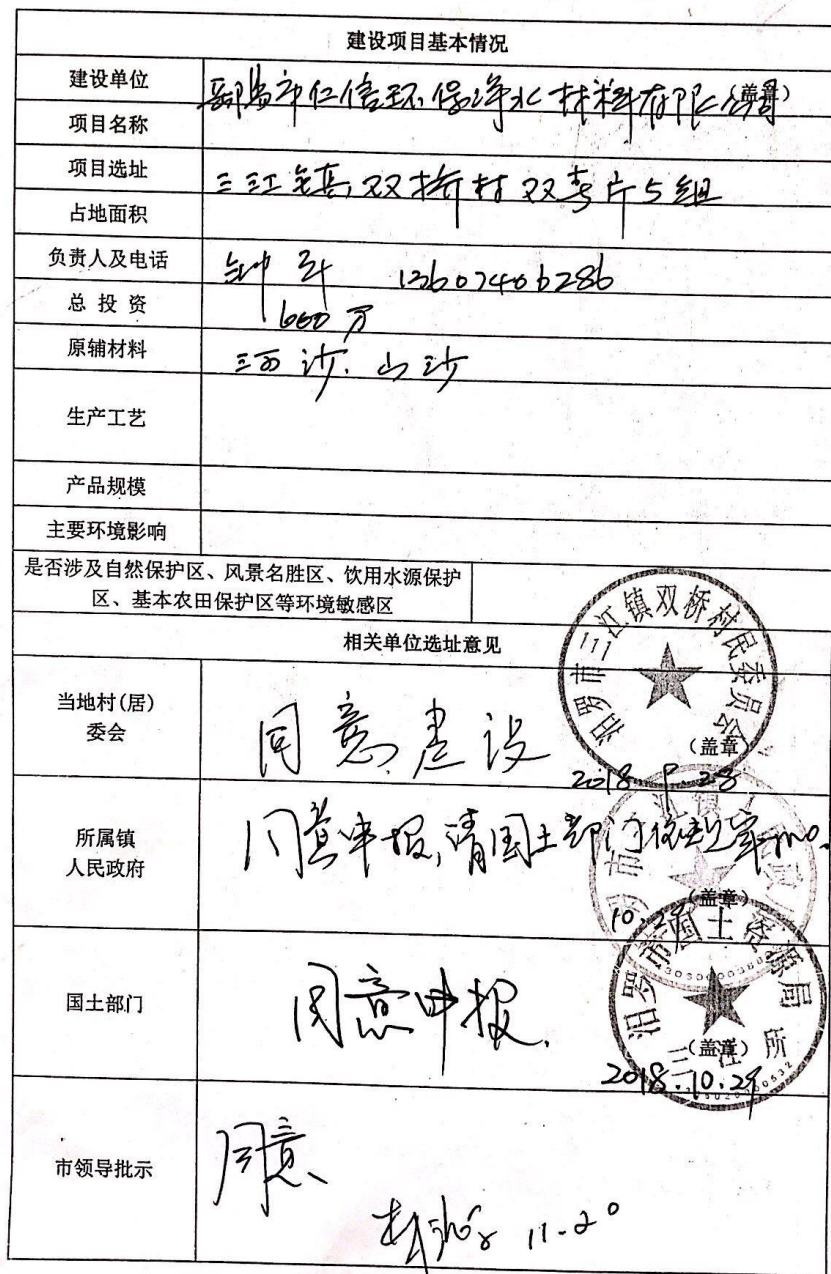 建设项目基本情况
建设单位 市仁信环保净水材料有限公司(盖章)
项目名称
项目选址 三江镇双桥村双寿片5组
占地面积
负责人及电话 钟 13607406286
总投资 1660万
原辅材料 河沙、山沙
生产工艺
产品规模
主要环境影响
是否涉及自然保护区、风景名胜区、饮用水源保护
区、基本农田保护区等环境敏感区
相关单位选址意见
汨罗市三江镇双桥村民委员会
当地村(居)
委会
同意建设
(盖章)
2018.9.28
所属镇
人民政府
同意申报,请国土部门依规审
(盖章)
10.29
国土部门
同意申报.
汨罗市国土资源局
三江所
(盖章)
2018.10.29
市领导批示
同意
11-20